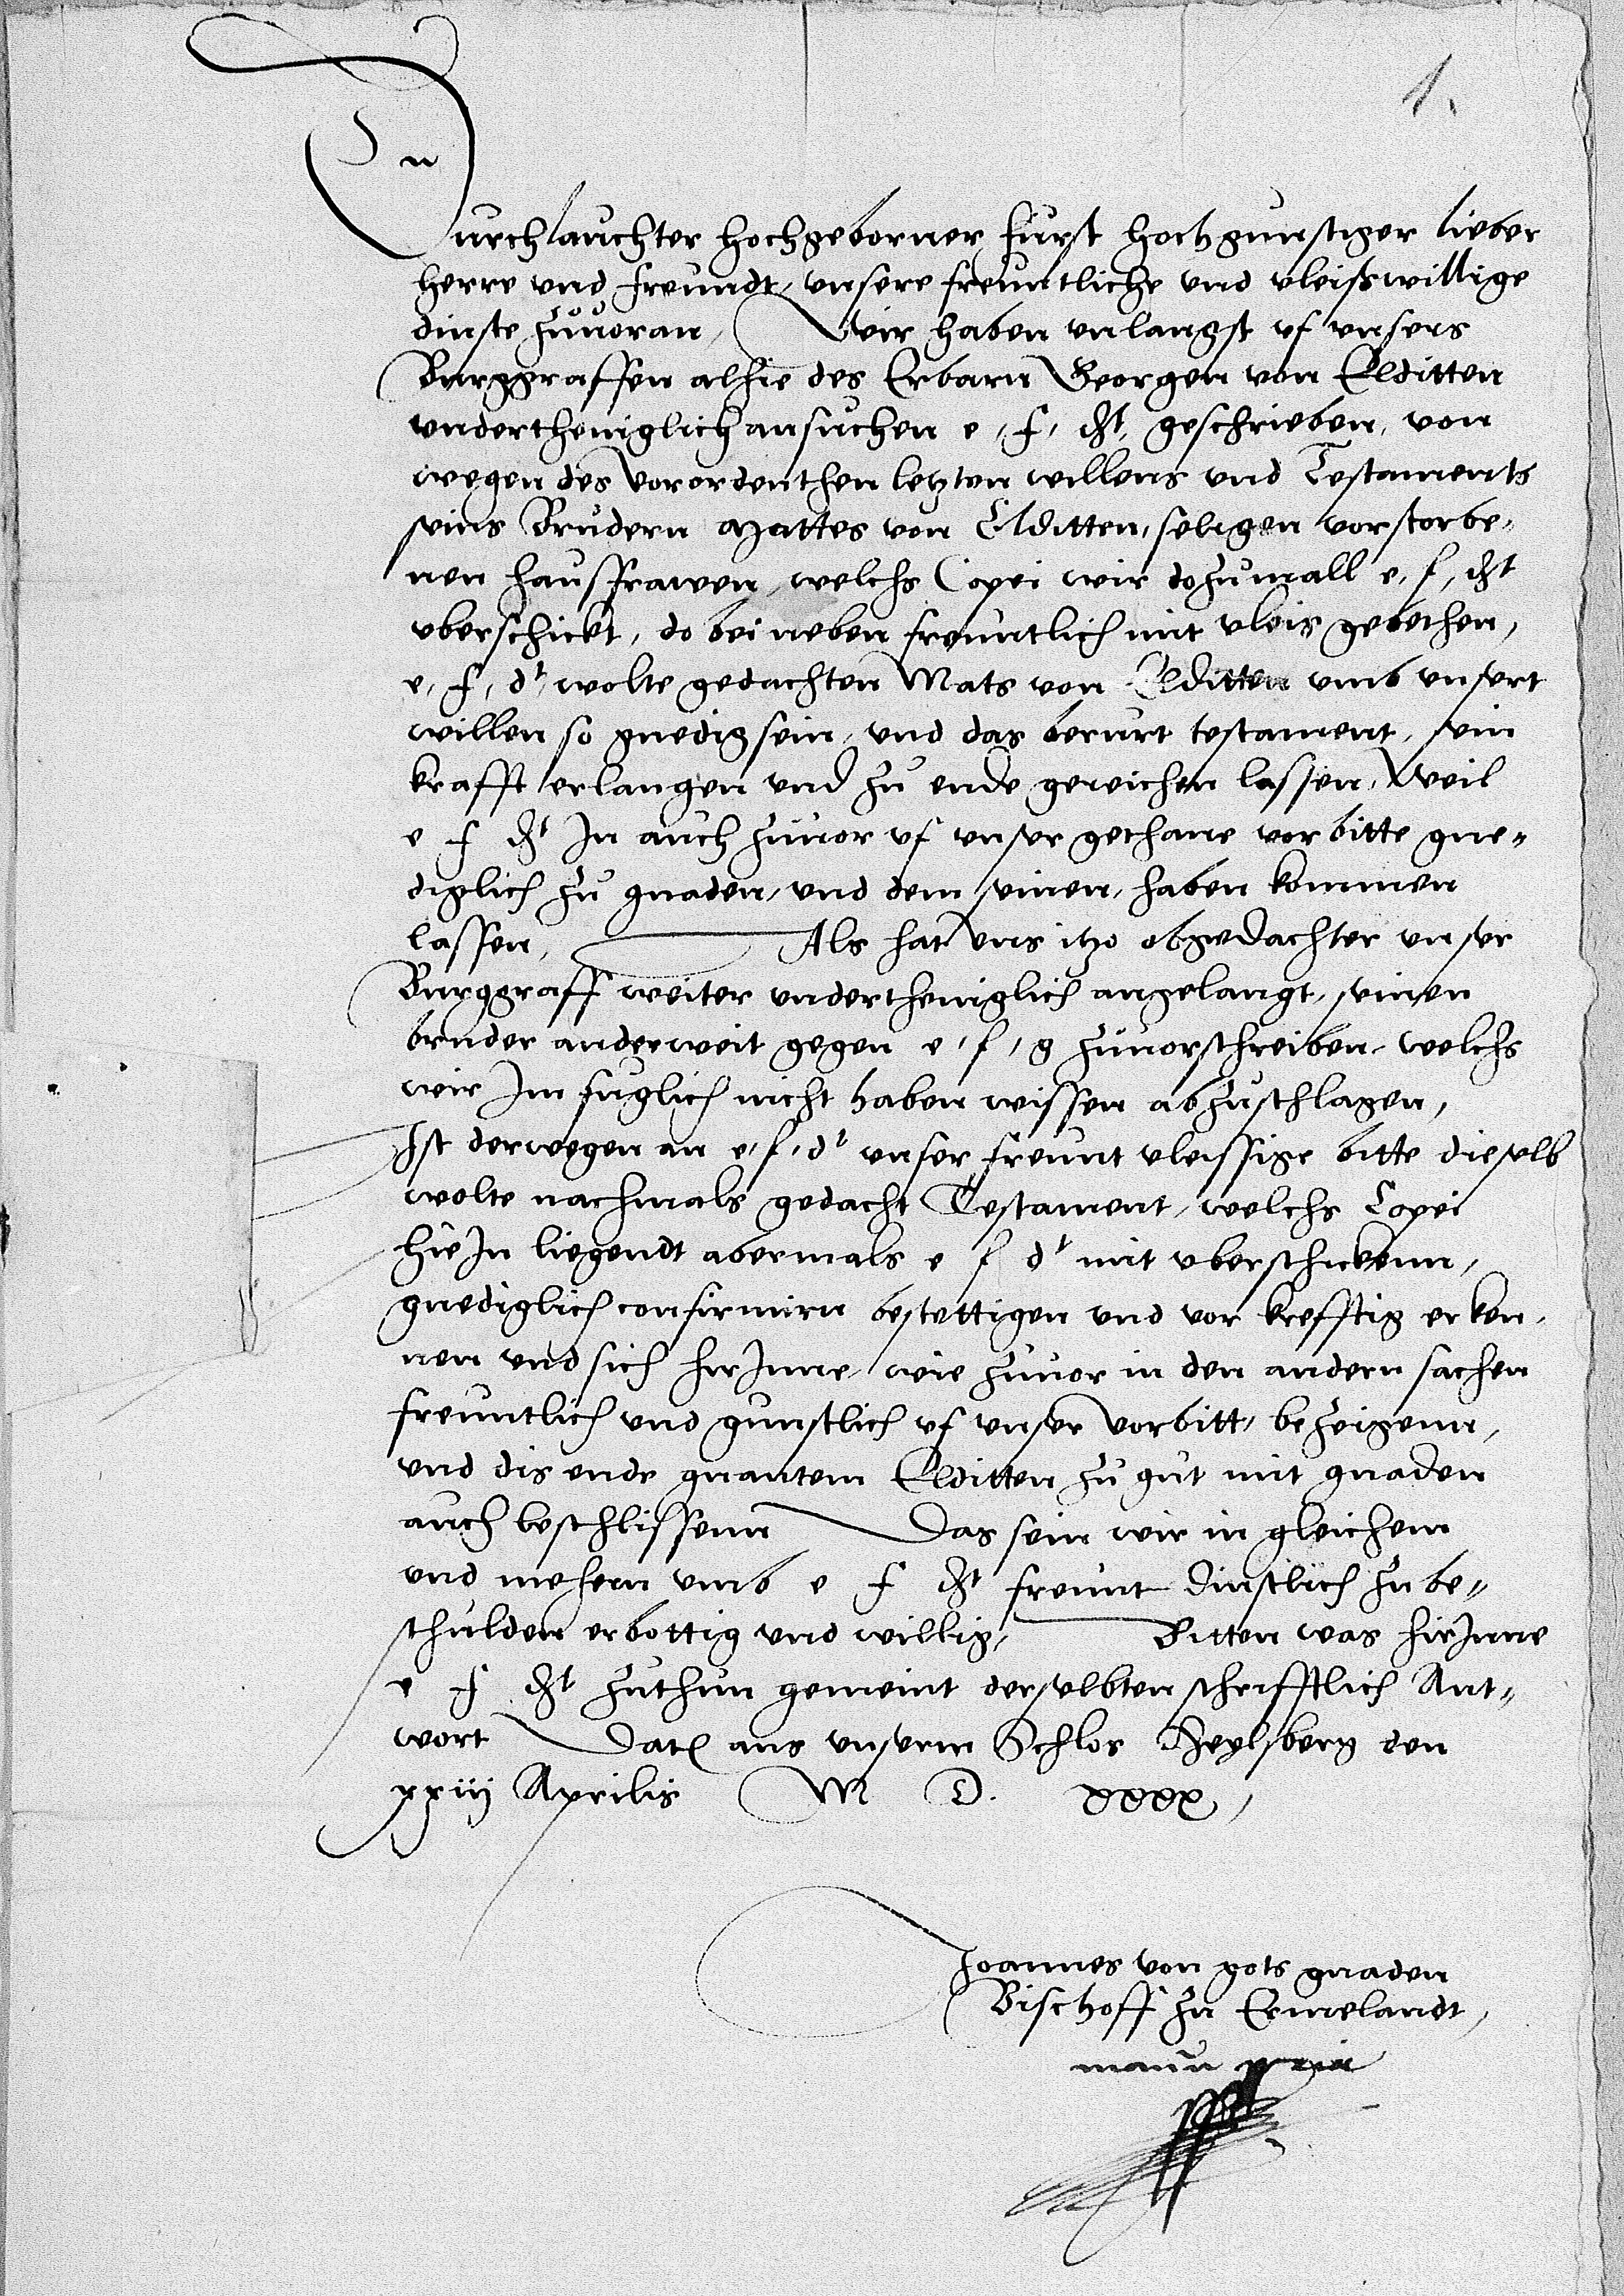 1.
Durchlauchter hochgeborner furst hochgunstiger lieber
herre vnd freundt, vnsere freuntliche vnd vleiswillige
dinste zuuoran, Wir haben vnlangst vf vnsers
Burggraffen alhie des Erbarn Georgen von Elditten
vndertheniglich ansuchen e, f, dt, geschrieben, von
wegen des vorordenthen letzten willens vnd Testaments
seins Brudern Mattes von Elditten, seligen vorstorbe,
nen hausfrawen, welchs Copei wir dozumall e, f, dt
vberschickt, do bei neben freuntlich mit vleis gebethen,
e, f, dt, wolte gedachten Mats von Elditten vmb vnsert
willen so gnedig sein, vnd das berurt testament, sein
krafft erlangen vnd zu ende gereichen lassen, Weil
e f dt In auch zuuor vf vnser gethane vorbitte gne„
diglich zu gnaden, vnd dem seinen, haben kommen
lassen, Als hat vns itzo obgedachter vnser
Burggraff weiter vndertheniglich angelangt, seinen
bruder anderweit gegen e, f, g zuuorschreiben, welchs
wir Im fuglich nicht haben wissen abzuschlagen,
Ist derwegen an e, f, dt vnser freunt vleissige bitte dieselb
wolte nachmals gedacht Testament, welchs Copei
hie In liegendt abermals e f dt mit vberschickenn,
gnediglich confirmirn bestettigen vnd vor krefftig erken,
nen vnd sich hir Inne, wie zuuor in den andern sachen
freuntlich vnd gunstlich vf vnser vorbitt, bezeigenn,
vnd dis ende gnantem Elditten zu gut mit gnaden
auch beschlissenn Das sein wir in gleichem
vnd mehern vmb e f dt freunt dinstlich zu be„
schulden erbottig vnd willig, Bitten was hir Inne
e f dt zuthun gemeint derselbten schrifftlich Ant„
wort Dat aus vnserm Schlos Heylsberg den
xxiij Aprilis M D. xxxx,
Joannes von gots gnaden
Bischoff zu Ermelandt,
manu